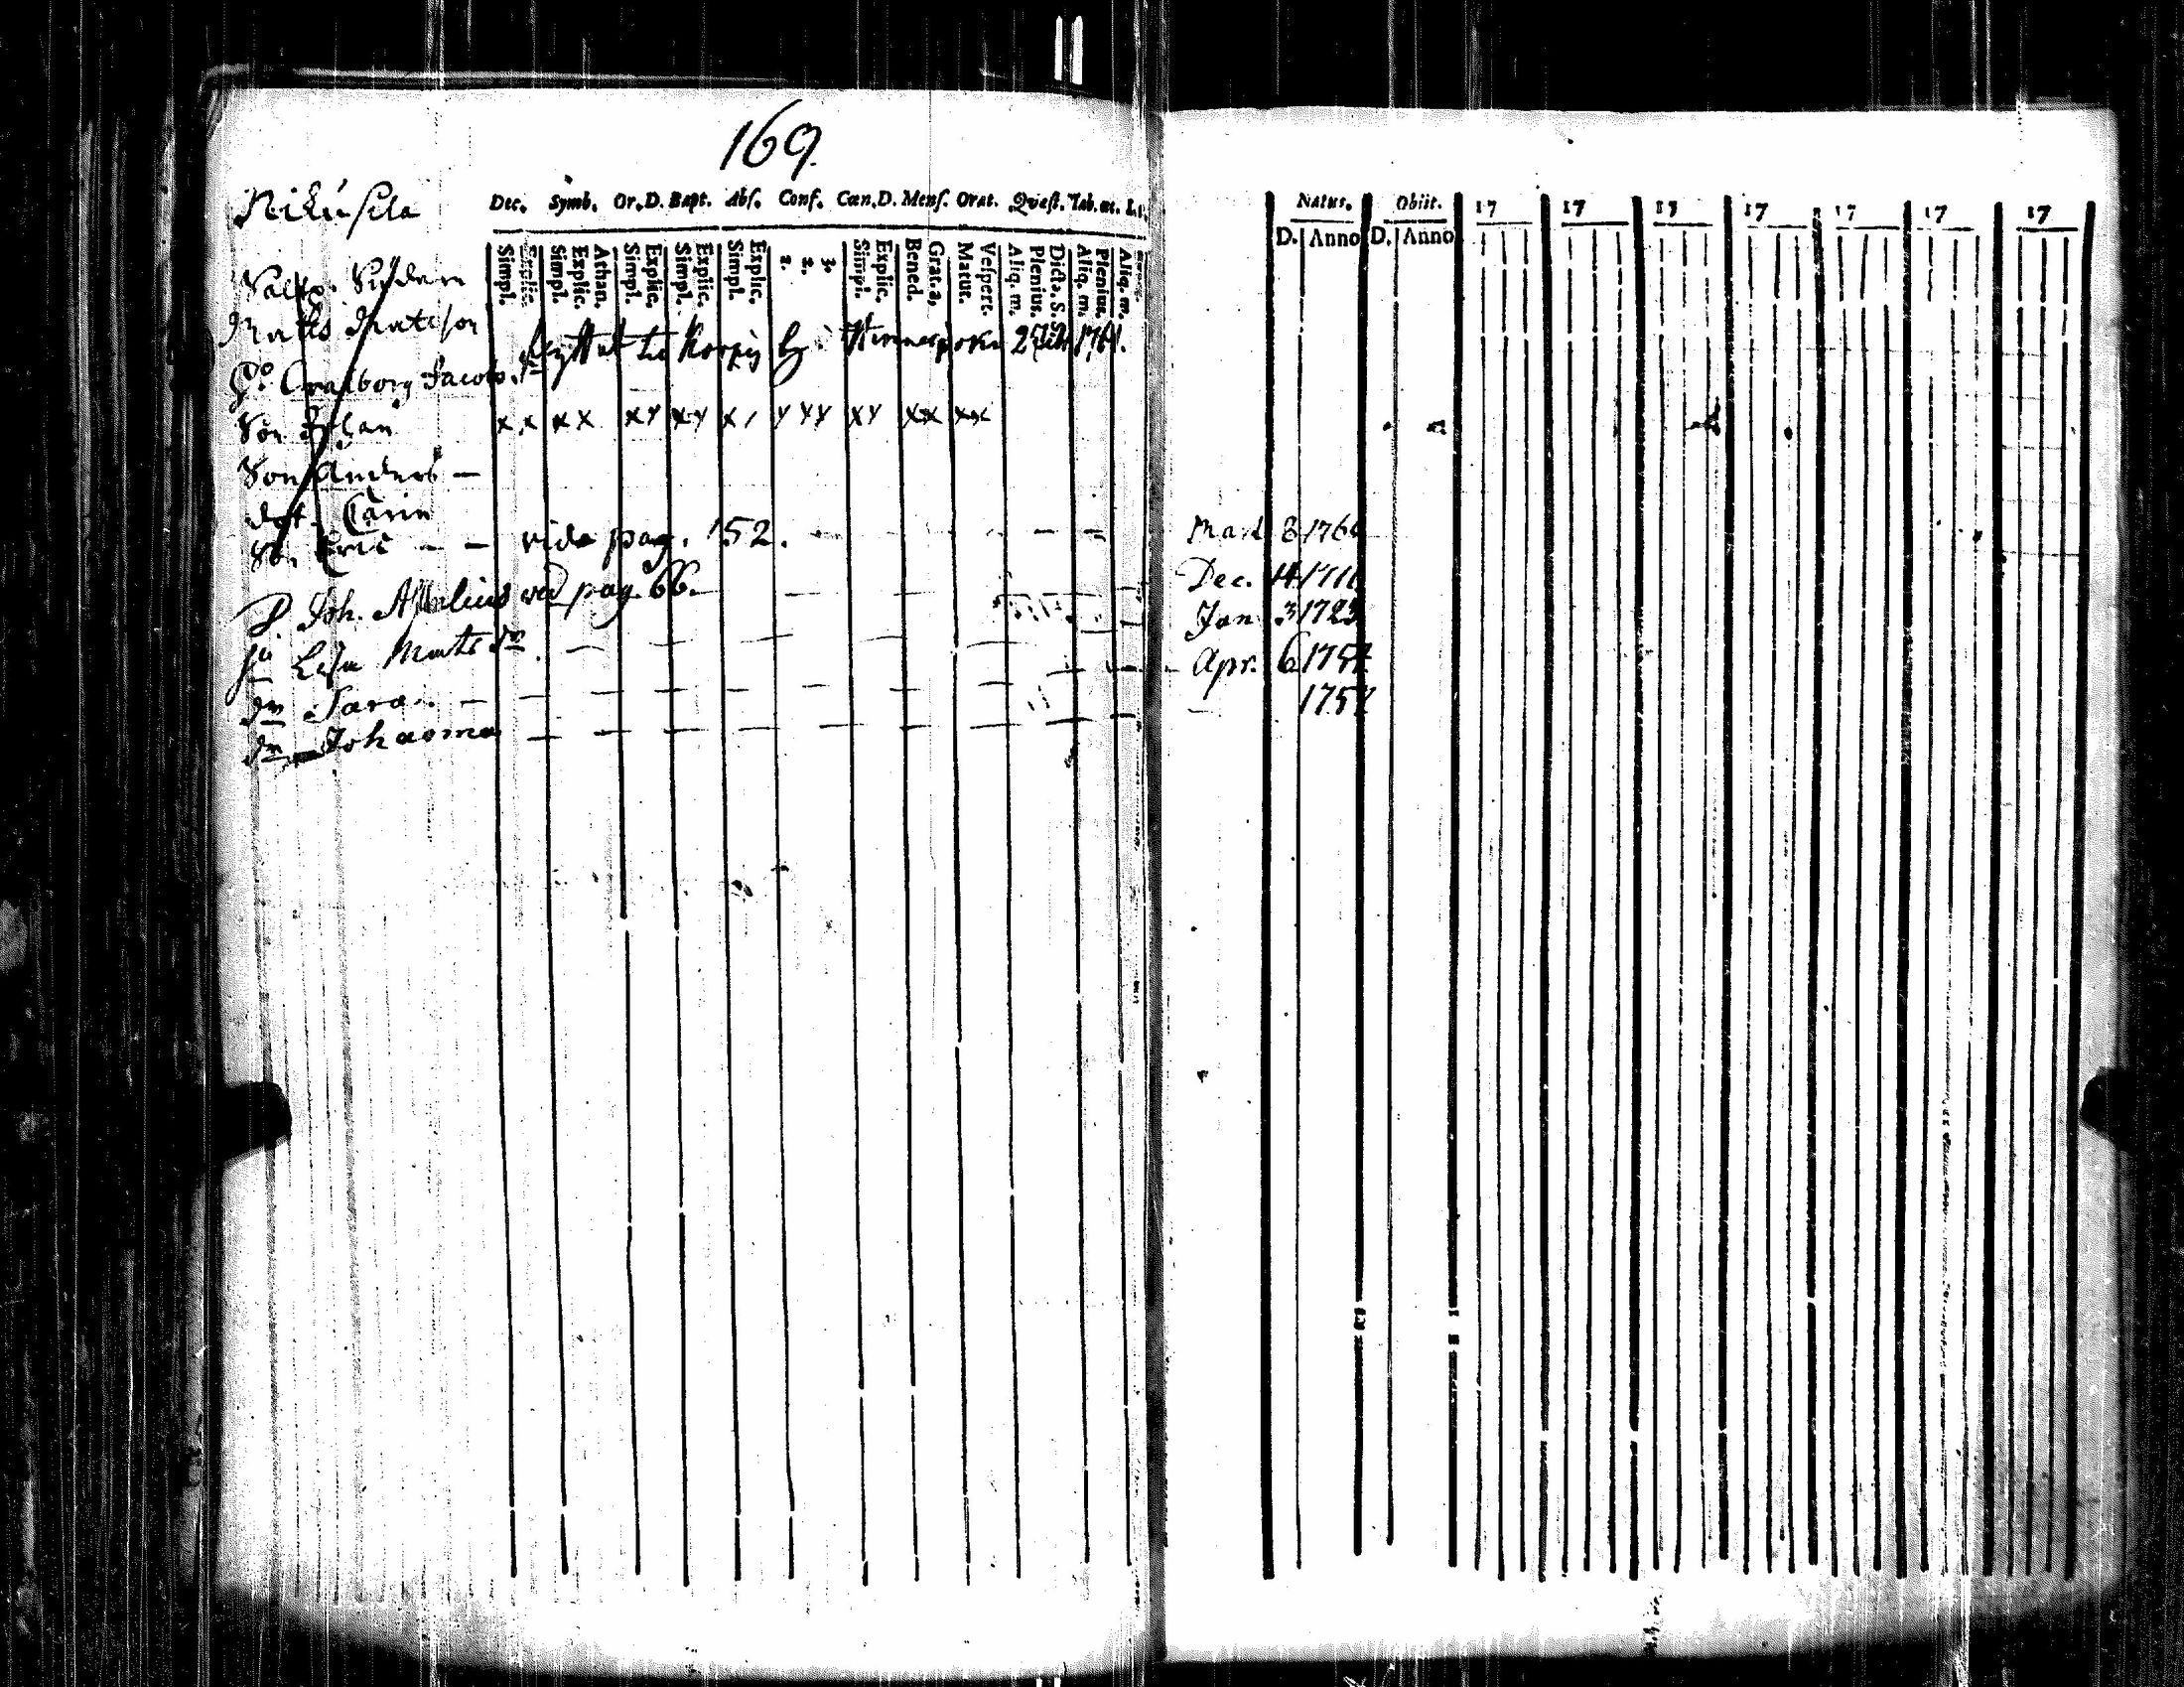 169.
Nikusela
Dec. Symb. Or. D. Bapt. Abs. Conf. Cœn. D. Mens. Orat. Quæst. Tab. œc.
Simpl. Explic. Simpl. Explic. Athan. Simpl. Explic. Simpl. Explic. Simpl. Explic. 1. 2. 3. Simpl. Explic. Bened. Grat. a. Matut. Vespert. Aliq. m. Plenius. Dicta. S. S. Aliq. m. Plenius. Aliq. m.
Natus. Obiit. 17 17 17 17 17 17 17
D. Anno D. Anno
Mats Matsson
flyttat til Korpis by i 1761.
H:o Walborg Jacobs dr
Son Johan x x x x x y x y x / y y y x y x x x x
Son Anders —
dot. Carin
Son Eric — — vide pag. 152. Mart 8 1760
P Joh. vid pag. 66. Dec. 14 1711
hu Lisa Mats dr. Jan 3 1723
dr Sara — Apr. 6 1752
dr Johanna 1757